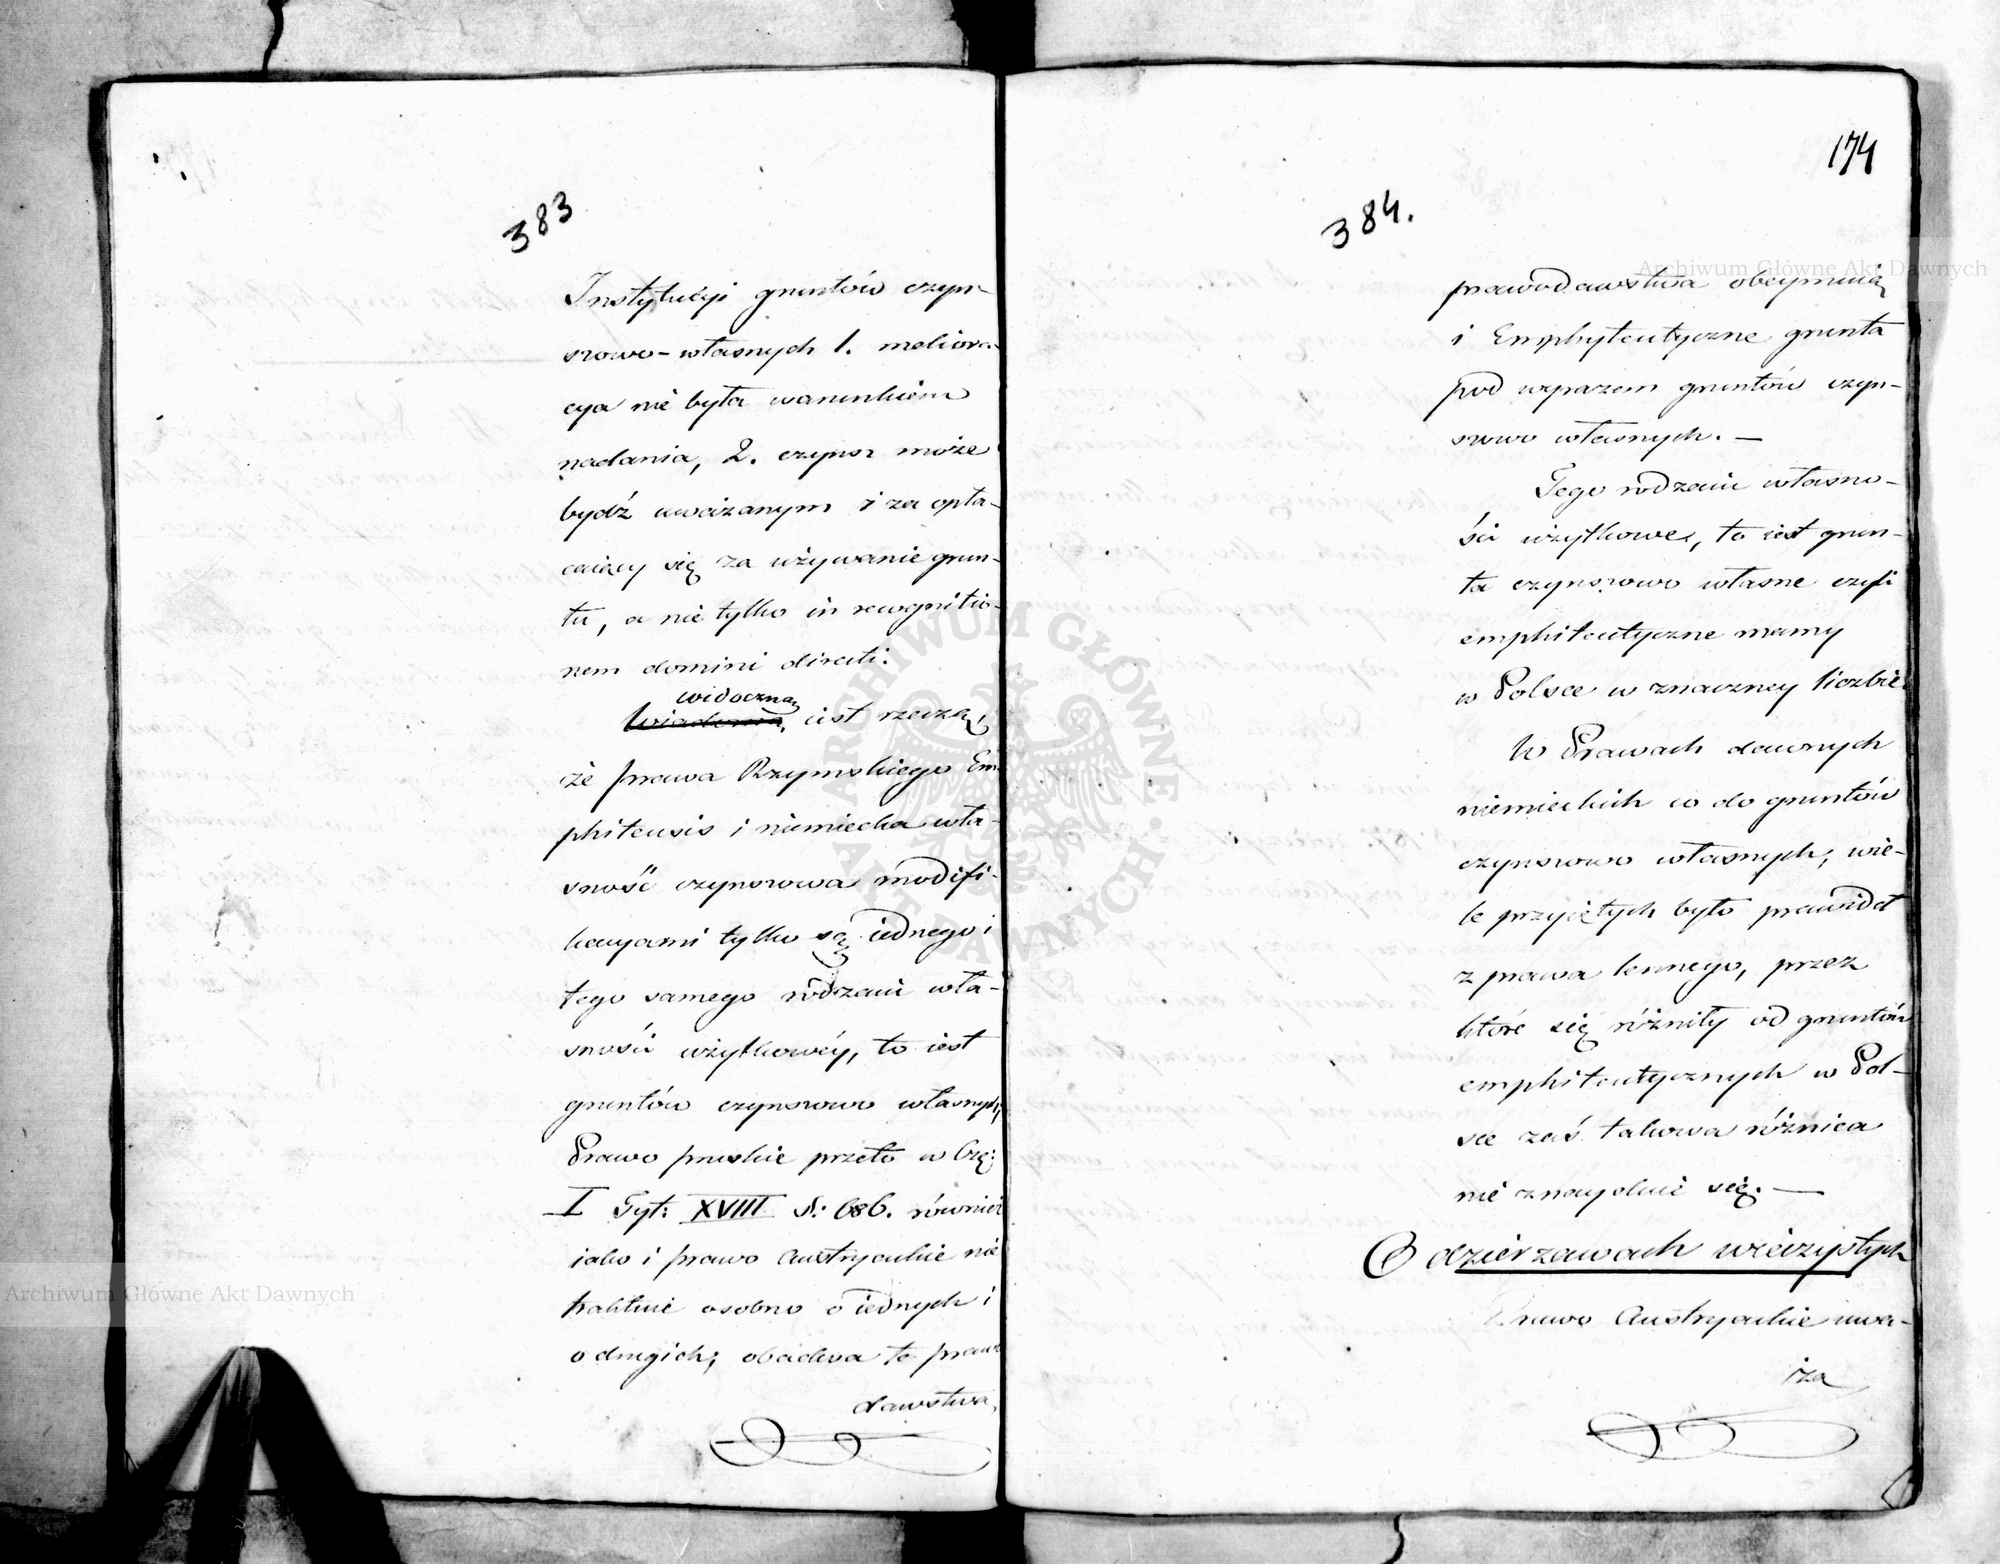 383
Instytucyi gruntów czyn-
szowo-własnych 1. meliora-
cya nie była warunkiem
nadania, 2. czynsz może
bydź uważanym i za opła-
caiący się za używanie grun-
tu, a nie tylko in recognitio-
nem domini directi.
widoczną
Wiadomą, iest rzeczą,
że prawa Rzymskiego Em-
phiteusis i niemiecka wła-
sność czynszowa modifi-
kacyami tylko są iednego i
tego samego rodzaiu wła-
sności użytkowéy, to iest
gruntów czynszowo własnych,
Prawo pruskie przeto w Czę:
I Tyt: XVIII §: 686. równieź
iako i prawo Austryackie nie
traktuie osobno o iednych i
o drugich; obadwa te prawo
dawstwa,
174
384.
prawodawstwa obeymuią
i Emphyteutyczne grunta
pod wyrazem gruntów czyn-
szowo własnych. —
Tego rodzaiu własno-
ści użytkowe, to iest grun-
ta czynszowo własne czyli
emphiteutyczne mamy
w Polsce w znaczney liczbie.
W Prawach dawnych
niemieckich co do gruntów
czynszowo własnych, wie-
le przyiętych było prawideł
z prawa lennego, przez
które się różniły od gruntów
emphiteutycznych w Pol-
sce zaś takowa różnica
nie znayduie się. —
O dzierzawach wieczystych
Prawo Austryackie uwa-
ża
Archiwum Główne Akt Dawnych
Archiwum Główne Akt Dawnych